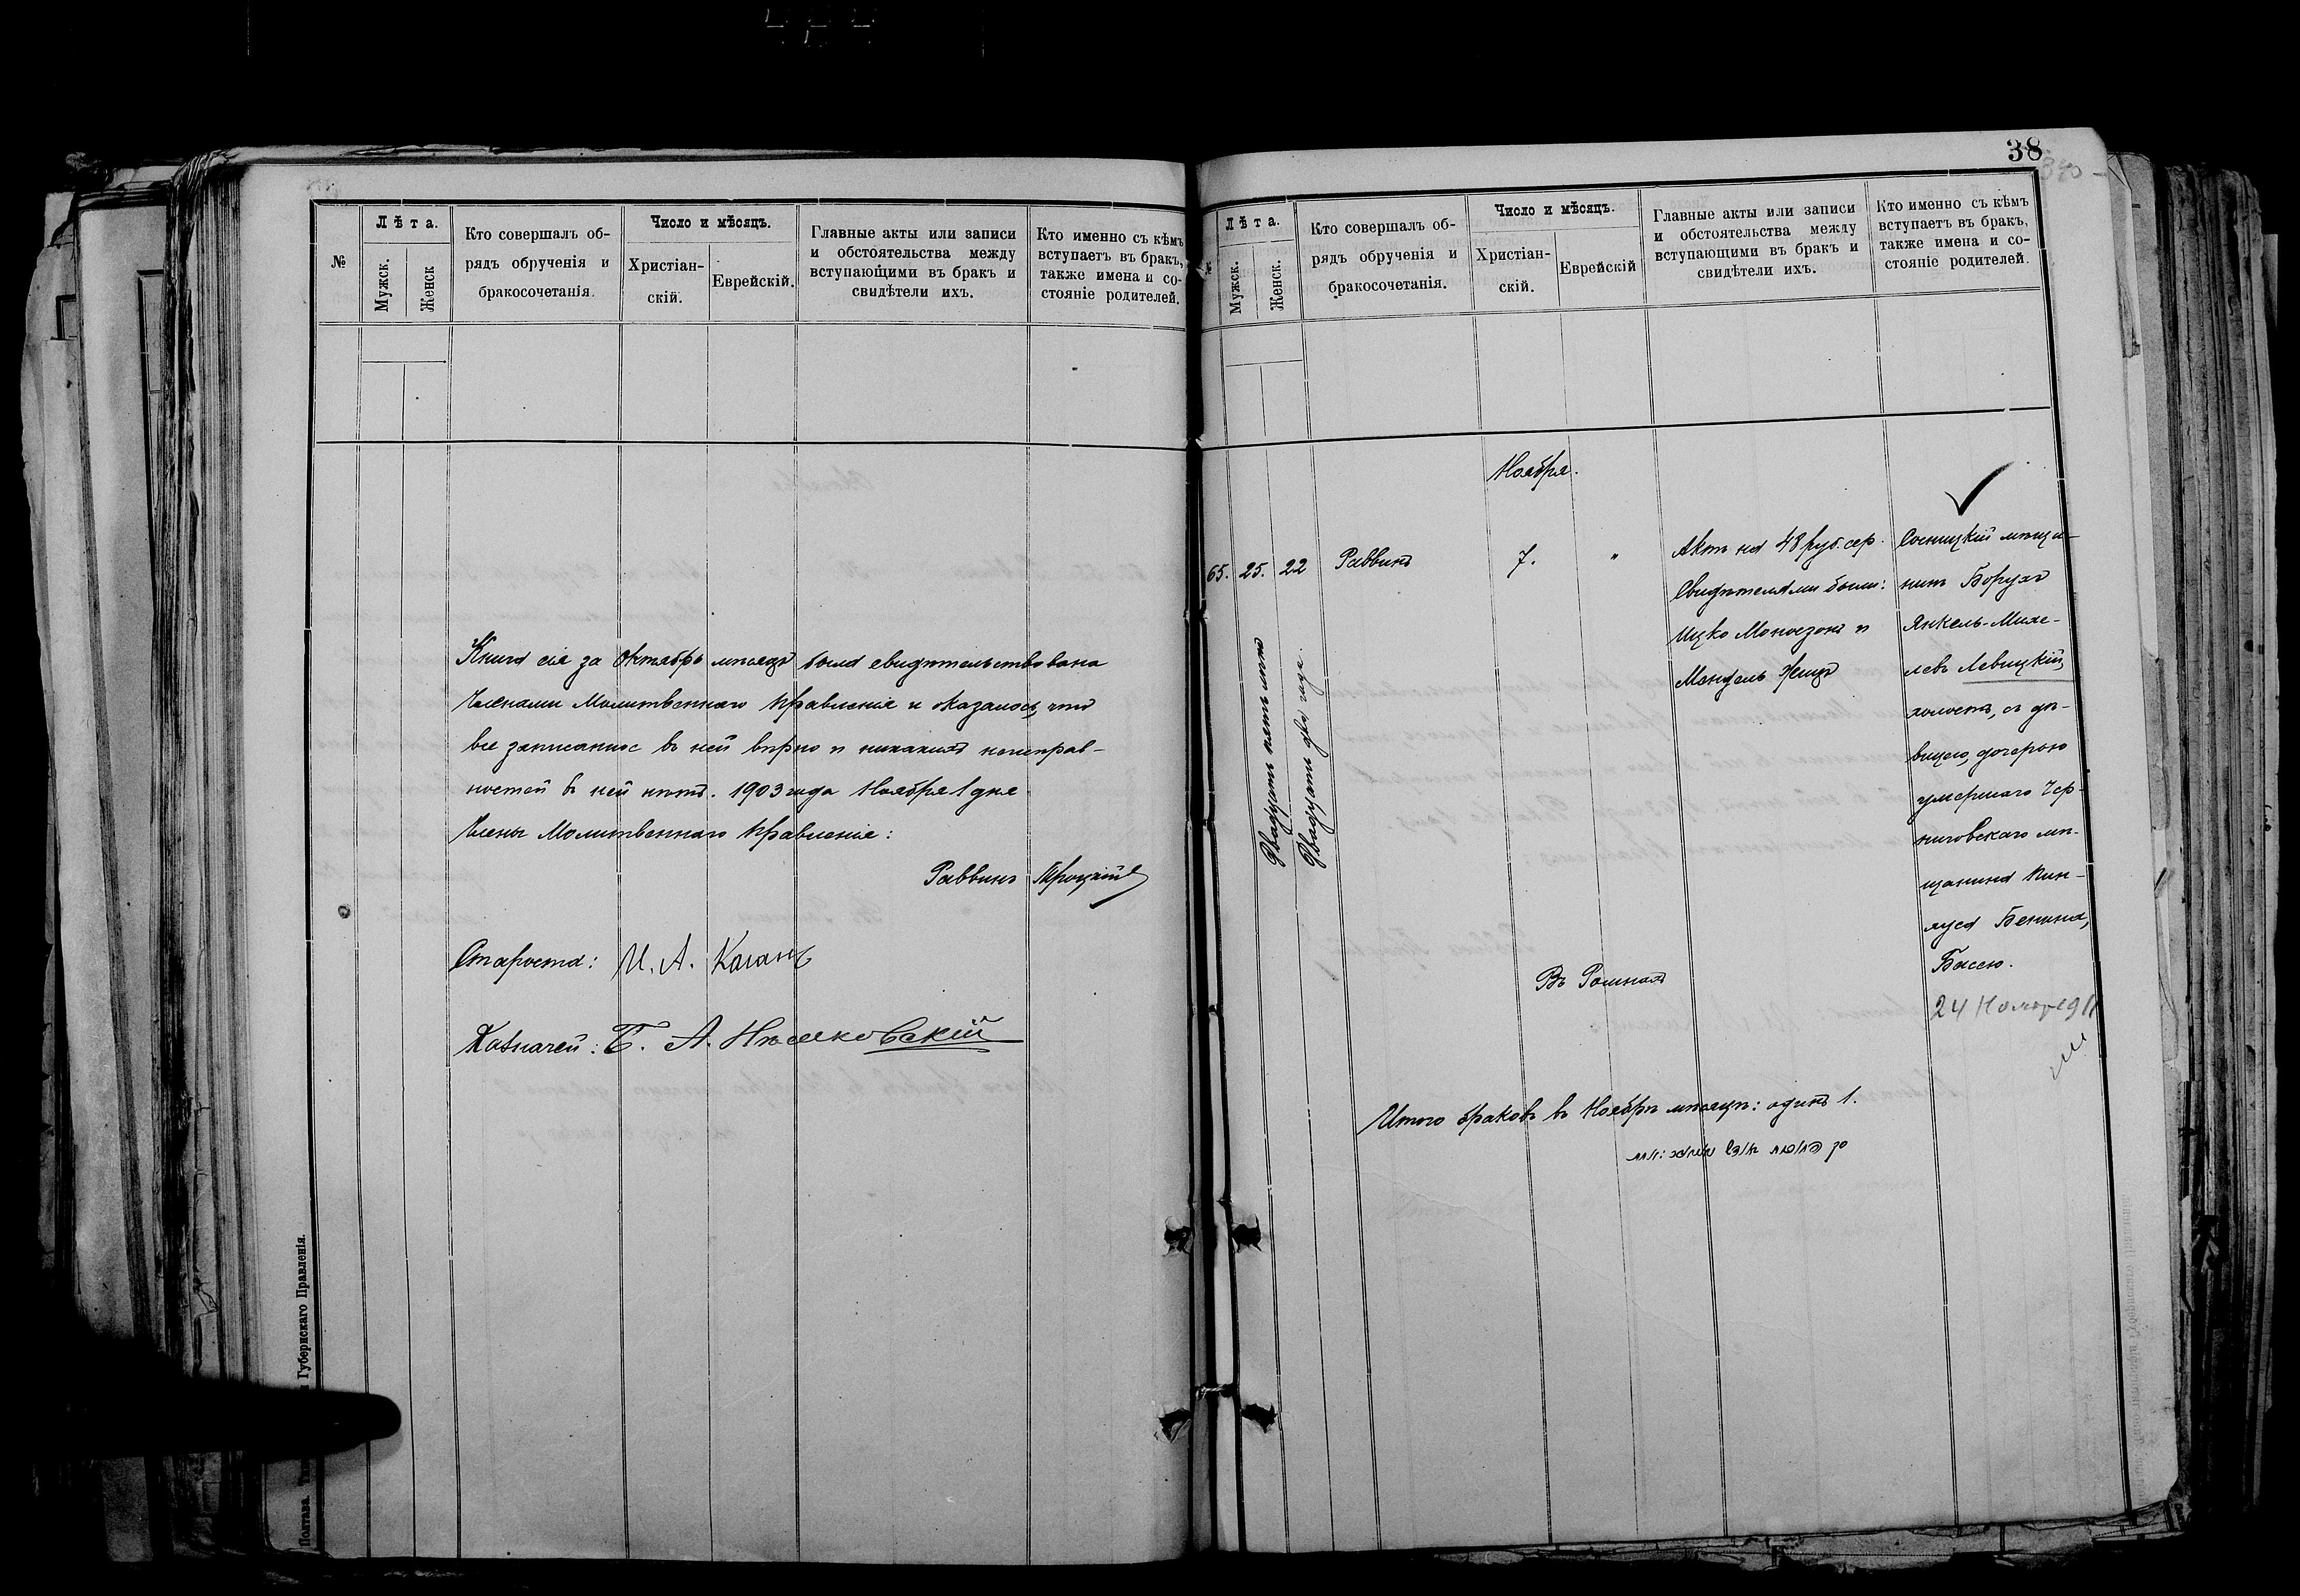 №
Лѣта.
Мужск.
Женск
Кто совершалъ об-
рядъ обрученія и
бракосочетанія.
Число и мѣсяцъ.
Христіан-
скій.
Еврейскій.
Главные акты или записи
и обстоятельства между
вступающими въ бракъ и
свидѣтели ихъ.
Кто именно съ кѣмъ
вступаетъ въ бракъ,
также имена и со-
стояніе родителей.
Книга сія за Октябрь мѣсяцъ была свидѣтельствована
Членами Молитвеннаго Правленія и оказалось, что
все записанное въ ней вѣрно и никакихъ неисправ-
ностей въ ней нѣтъ. 1903 года Ноября 1 дня
Члены Молитвеннаго Правленія:
Раввинъ Троцкій
Староста: И. А. Каганъ
Казначей: Б. А.
Полтава.
Губернскаго Правленія.
38
Лѣта.
Мужск.
Женск.
Кто совершалъ об-
рядъ обрученія и
бракосочетанія.
Число и мѣсяцъ.
Христіан-
скій.
Еврейскій
Главные акты или записи
и обстоятельства между
вступающими въ бракъ и
свидѣтели ихъ.
Кто именно съ кѣмъ
вступаетъ въ бракъ,
также имена и со-
стояніе родителей.
Ноября.
65. 25. 22 Раввинъ 7. "
Двадцать пять лѣтъ
Двадцать два года.
Актъ на 48 руб. сер.
Свидѣтелями были:
Ицко Моносзонъ и
Мендель
Сосницкій мѣща-
нинъ Борухъ
Янкель-Михе-
левъ Левицкій,
холостъ, съ дѣ-
вицею, дочерью
умершаго Чер-
ниговскаго мѣ-
щанина Пин-
хуса Бенина,
Басею.
Въ Ромнахъ
24
Итого браковъ въ Ноябрѣ мѣсяцѣ: одинъ 1.